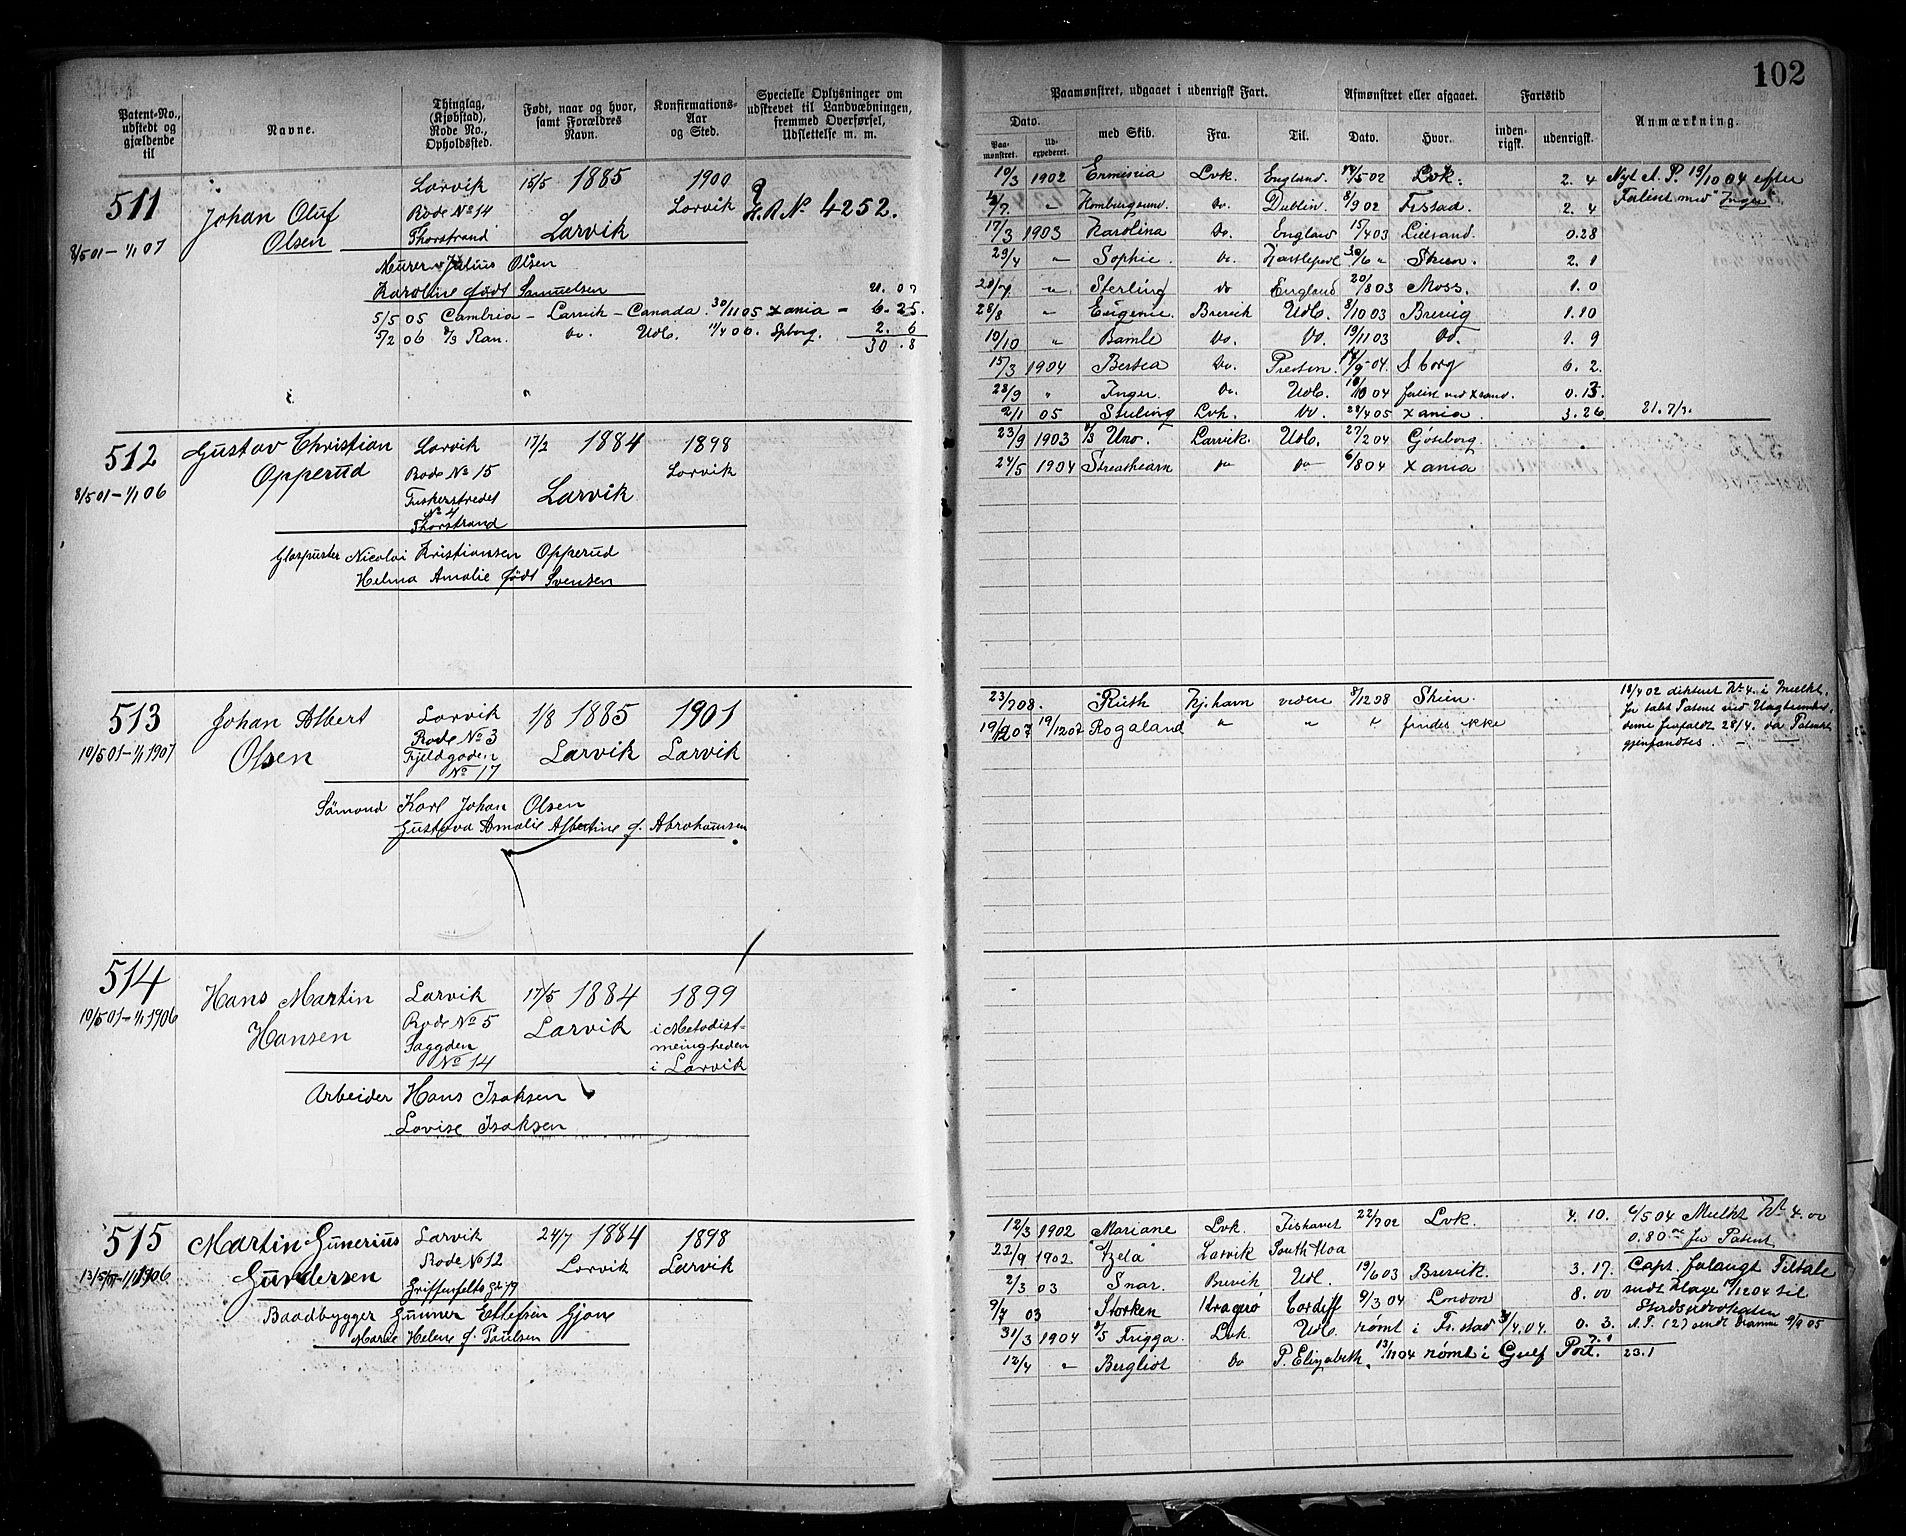 102
Patent-No., udstedt og gjældende til
Navne.
Thinglag, (Kjøbstad), Rode No., Opholdssted.
Født, naar og hvor, samt Forældres Navn.
Konfirmations-Aar og Sted.
Specielle Oplysninger om udskrevet til Landværbningen, fremmed Overførsel, Udslettelse m. m.
Paamønstret, udgaaet i udenrigsk Fart.
Afmønstret eller afgaaet.
Fartstid
Anmærkning.
Dato.
Paa-mønstret.
Ud-expederet.
med Skib.
Fra.
Til.
Dato.
Hvor.
inden-rigsk.
udenrigsk.
511
8/5 01 – 1/1 07
Johan Oluf
Olsen
Larvik
Rode No 14
Thorstrand
15/5 1885
Larvik
1900
Larvik
H.R. No 4252.
Murer Julius Olsen
Karoline født Samuelsen
5/5 05 Cambria – Larvik – Canada 30/11 05 Xania – 6.25.
5/2 06 Ran. Do. Udl. 11/4 06. Spborg. 2. 6
30. 8
10/3 1902 Ermisia Lvk. England. 14/5 02 Lvk. 2. 4
Do. Dublin. 8/9 02 Fr.stad. 2. 4
17/3 1903 Karolina Do. England 15/4 03 Lillesand. 0.28
29/4 " Sophie. Do. Hartlepool 30/6 " Skien. 2. 1
" Sterling Do England 20/8 03 Moss. 1. 0
28/8 " Eugenie. Brevik Udl. 8/10 03 Brevig 1.10
10/10 " Bamle Do. Do. 19/11 03 Do. 1. 9
15/3 1904 Do. Preston. 04. S borg 6. 2.
28/9 " Inger. Do. Udl. 04 forlist ved Xsand. 0.13.
2/1 05 Sterling Lvk. Do 28/4 05 Xania. 3.26
Nyt A. P. 19/10 04 efter
Forlist med "Inger"
512
8/5 01 – 1/1 06
Gustav Christian
Opperud
Larvik
Rode No 15
Fiskerstredet
No 4
Thorstrand
17/2 1884
Larvik
1898
Larvik
Glaspuster Nicolai Kristiansen Opperud
Helma Amalie født Svensen
23/9 1903 Uno. Larvik. Udl. 27/2 04 Gøteborg
24/5 1904 Streatham do do 6/8 04 Xania
513
10/5 01 – 1/1 1907
Johan Albert
Olsen
Larvik
Rode No 3
Fjeldgaden
No 17
1/8 1885
Larvik
1901
Larvik
Sømand Karl Johan Olsen
Gustava Amalie Albertine f. Abrahamsen
23/7 08. Ruth Kj.havn videre 8/12 08 Skien.
19/12 07 19/12 07 Rogaland " " " findes ikke
18/4 02 dikteret Kr 4. i Mulkt,
for tabt Patent ved Uagtsomhed,
denne frafaldt 28/4. da Patentet
gjenfandtes.
514
10/5 01 – 1/1 1906
Hans Martin
Hansen
Larvik
Rode No 5
Saggden
No 14
17/5 1884
Larvik
1899
i Metodist-
menigheden
i Larvik
Arbeider Hans Isaksen
Lovise Isaksen
515
13/5 01 – 1/1 1906
Martin Gunerius
Gundersen
Larvik
Rode No 12
Griffenfelts Gd 19
24/7 1884
Larvik
1898
Larvik
Baadbygger Gunner Ellefsen Gjone
Maren Helene f. Paulsen
12/3 1902 Mariane Lvk. 22/7 02 Lvk. 4. 10.
22/9 1902 "Zeta" Larvik
2/3 03 Snar. Brevik Udl. 19/6 03 Brevik. 3. 17.
9/7 03 Storken Kragerø Cardiff 9/3 04 London 8. 00
31/3 1904 Frigga. Lvk. Udl. rømt i Fr.stad 4.04. 0. 3.
12/4 " Bergliot Do P. Elizabeth. 04 rømt i Gulf Port.
23.1
6/5 04 Mulkt Kr 4.00
0.80 for Patent